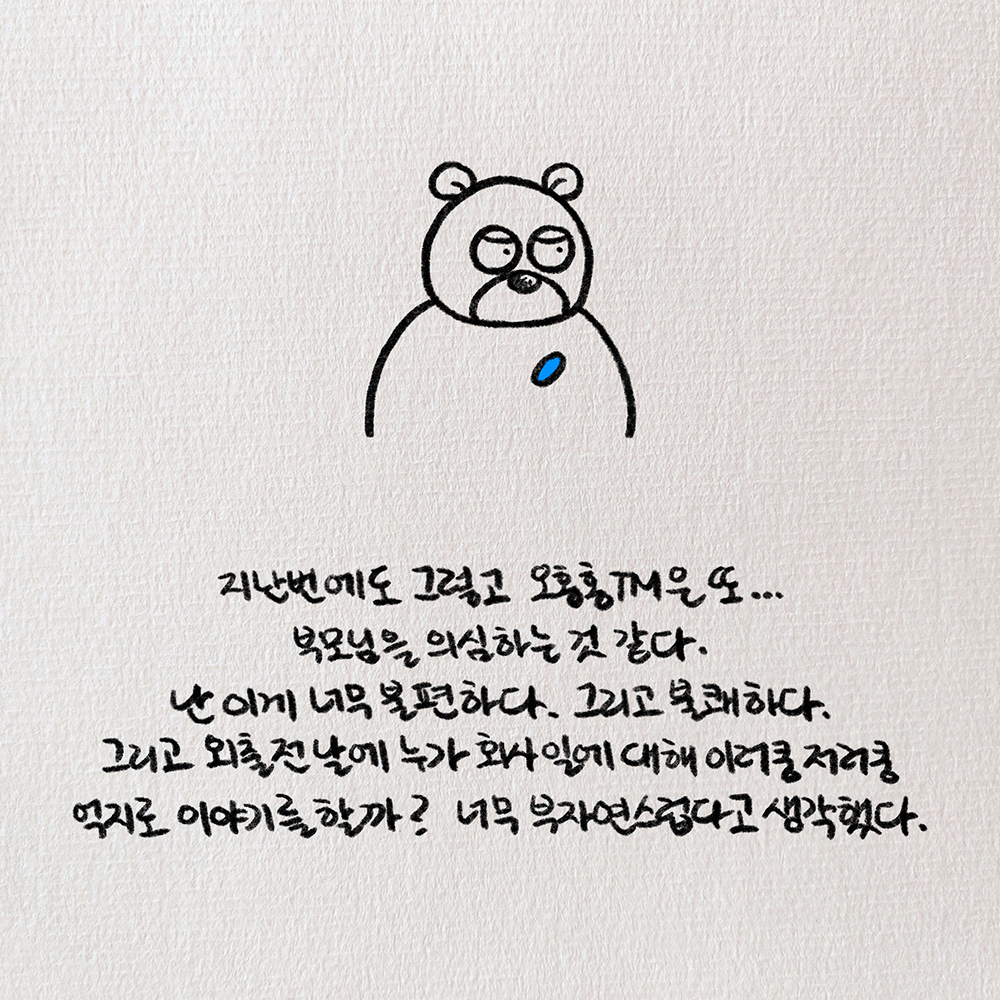 지난번에도 그렇고 오홍홍TM은 또...
부모님을 의심하는 것 같다.
난 이게 너무 불편하다. 그리고 불쾌하다.
그리고 외출 전날에 누가 회사일에 대해 이러쿵저러쿵
억지로 이야기를 할까? 너무 부자연스럽다고 생각했다.